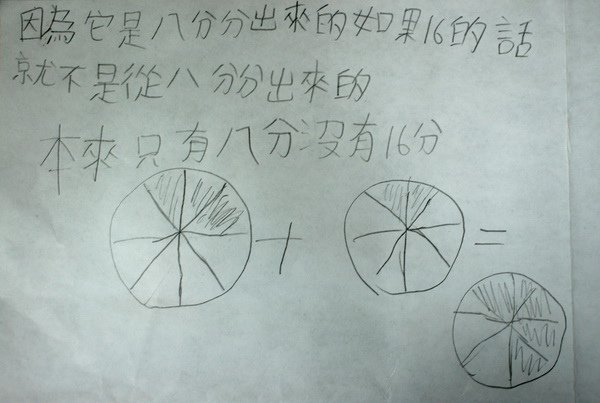 因為它是八分分出來的如果16的話
就不是從八分分出來的
本來只有八分沒有16分
+ =